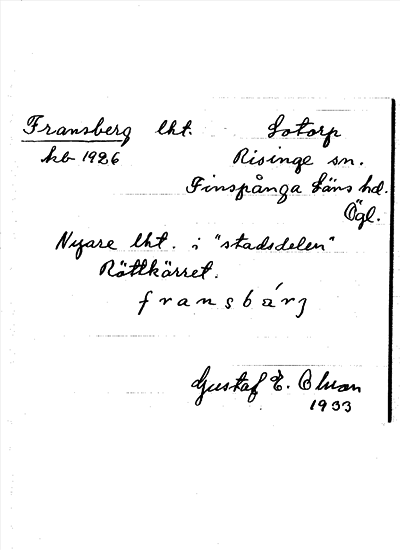 Fransberg lht. Lotorp
kb 1926 Risinge sn.
Finspånga läns hd.
Ögl.
Nyare lht. i "stadsdelen"
Röttkärret.
fransbárj
Gustaf E. Olson
1933